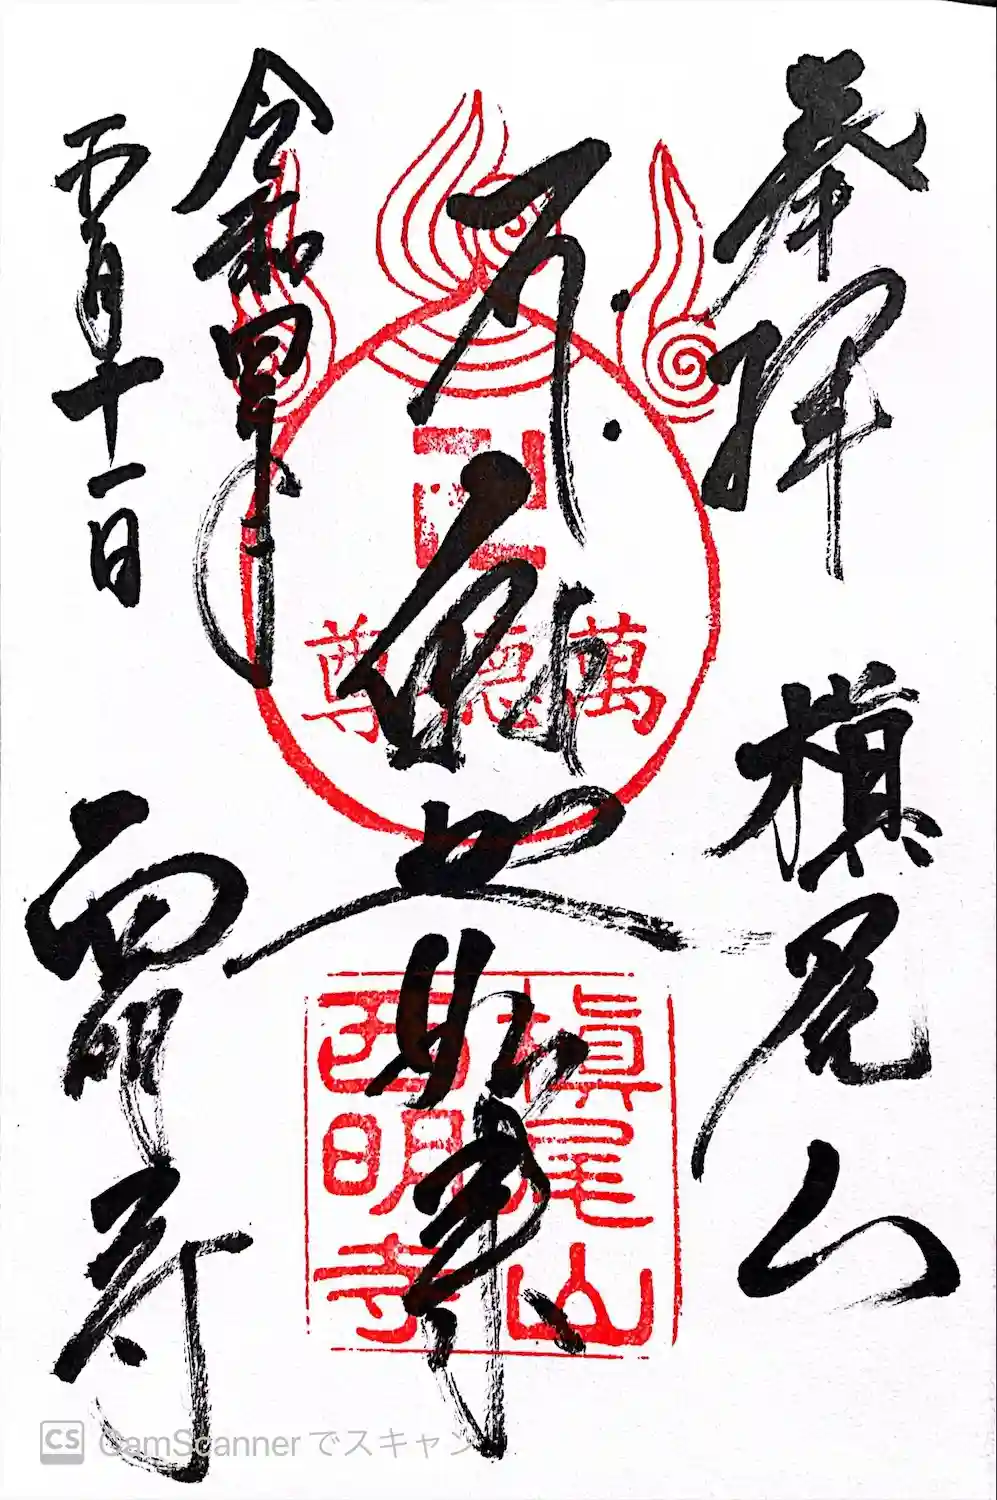 奉拝
槇尾山
令和四年
五月十一日
西明寺
卍
萬徳尊
槇尾山
西明寺
CS CamScannerでスキャン